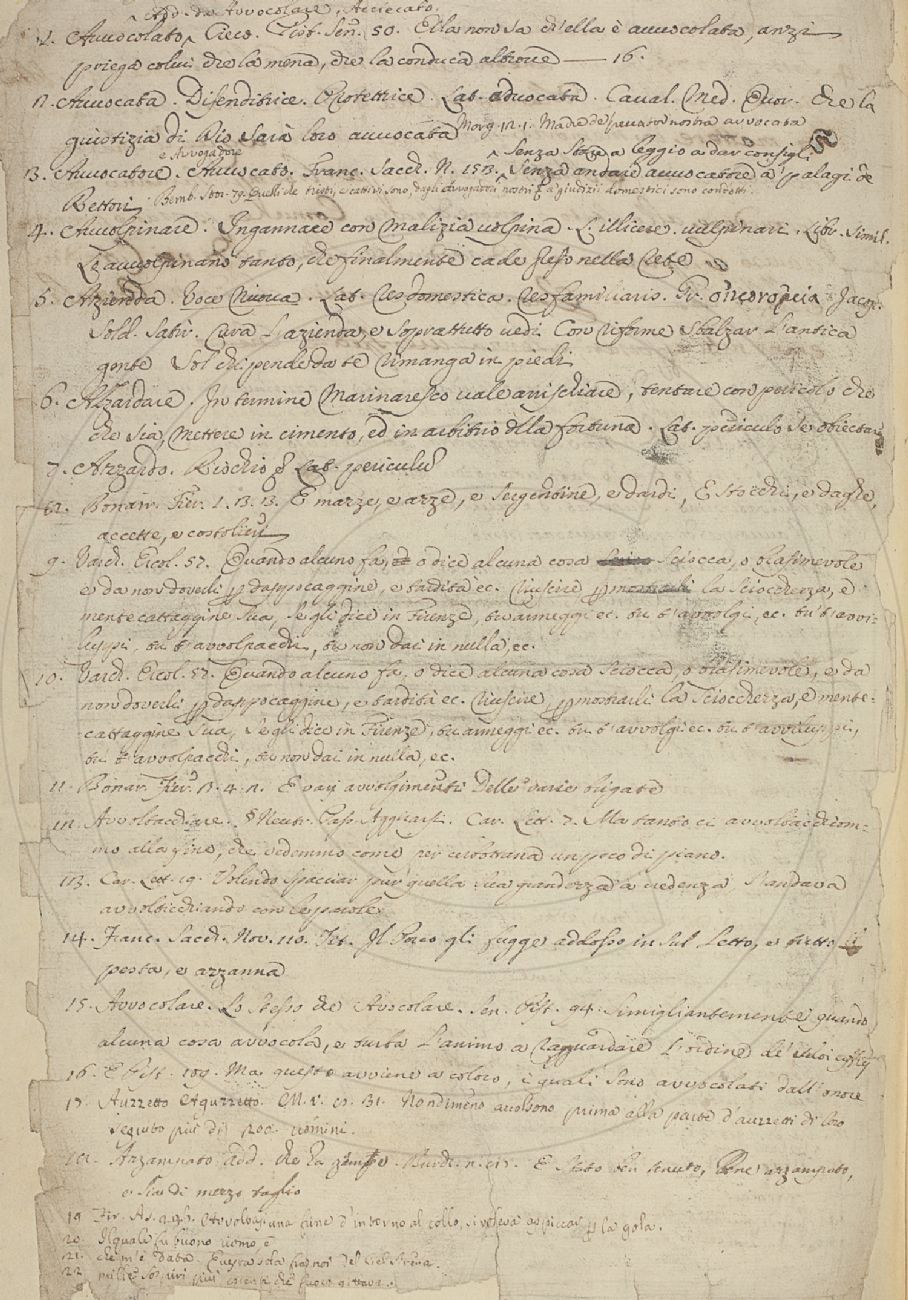 Add. da Avvocolare, Acciecato.
12. Avvocolato, Cieco. Pist. Sen. 50. Ella non sa ch'ella è avvocolata, anzi
priega colui che la mena, che la conduca altrove — 16.
12. Avvocata. Difenditrice. Protettrice. Lat. advocata. Caval. Med. Cuor. che la
giustizia di Dio sarà loro avvocata Morg. 12. 1. Madre de' peccator nostra avvocata
e Avvogadore Senza stare a leggio a dar consigli
13. Avvocatore. Avvocato. Franc. Sacch. N. 153. Senza andare avvocatore a' palagi de'
Rettori Bemb. Stor. 79. Quelli che tristi, e cattivi sono, dagli avvogadori nostri a' giudizii domestici sono condotti.
4. Avvolpinare. Ingannare con malizia volpina. L. illicere. vulpinari. Libr. Simil.
Le avvolpinano tanto, che finalmente cade spesso nella rete
5. Azienda. Voce Nuova. Lat. res domestica. res familiaris. Gr. Jacop.
Sold. Satir. Cura l'azienda, e soprattutto vedi Con riforme sbalzar l'antica
gente Sol chi pende da te rimanga in piedi
6. Azzardare. In termine Marinaresco vale arrischiare, tentare con pericolo che
che sia, Mettere in cimento, ed in arbitrio della fortuna. Lat. periculo se obiectare
7. Azzardo. Rischio Lat. periculum
12. Bonarr. Fier. 1. 13. 13. E marze, e arze, e sergentine, e dardi, E stocchi, e daghe,
accette, e costolieri
9. Varch. Ercol. 57. Quando alcuno fa, o dice alcuna cosa sciocca, o biasimevole
e da non doverli per dappocaggine, e tardità ec. riuscire per mostrarli la sciocchezza, e
mentecattaggine sua, se gli dice in Firenze, tu armeggi ec. tu t'avvolgi, ec. tu t'avvi-
luppi, tu t'avvolpacchi, tu non dai in nulla, ec.
10. Varch. Ercol. 57. Quando alcuno fa, o dice alcuna cosa sciocca, o biasimevole, e da
non doverli per dappocaggine, e tardità ec. riuscire, per mostrarli la sciocchezza, e mente-
cattaggine sua, se gli dice in Firenze, tu armeggi ec. tu t'avvolgi ec. tu t'avviluppi,
tu t'avvolpacchi, tu non dai in nulla, ec.
11. Bonar. Fier. 4. E varj avvolgimenti Delle varie brigate
12. Avvoltacchiare. Neutr. Pass. Aggirarsi. Car. Lett. 7. Ma tanto ci avvoltacchiam-
mo alla fine, che vedemmo come per cerbottana un poco di piano.
113. Car. Lett. 19. Volendo spacciar per quella sua credenza, S'andava
avvolticchiando con le parole
14. Franc. Sacch. Nov. 110. Tit. Il Porco gli fugge addosso in sul letto, e tutto il
pesta, e azzanna
15. Avvocolare. Lo stesso che Avocolare. Sen. Pist. 94. Simigliantemente quando
alcuna cosa avvocola, e turba l'animo a ragguardare l'ordine de' suoi
16. E Pist. 109. Ma questo avviene a coloro, i quali sono avvocolati dall'onore
17. Auzzetto Aguzzetto. M. V. 31. Nondimeno avolsono prima alla parte d'auzzetti di loro
seguito più di 200. uomini.
Azzannato add. che ha E stato ben tenuto, bene azzannato,
e sia di mezzo taglio
19. Fir. As. Avvoltasi una fune d'intorno al collo, si voleva appiccar per la gola.
20. Il quale fu buono uomo e
21. che m'è data. E questa sola fra noi del Ciel Sirena.
22. mille sospiri più cocenti che fuoco gittava.